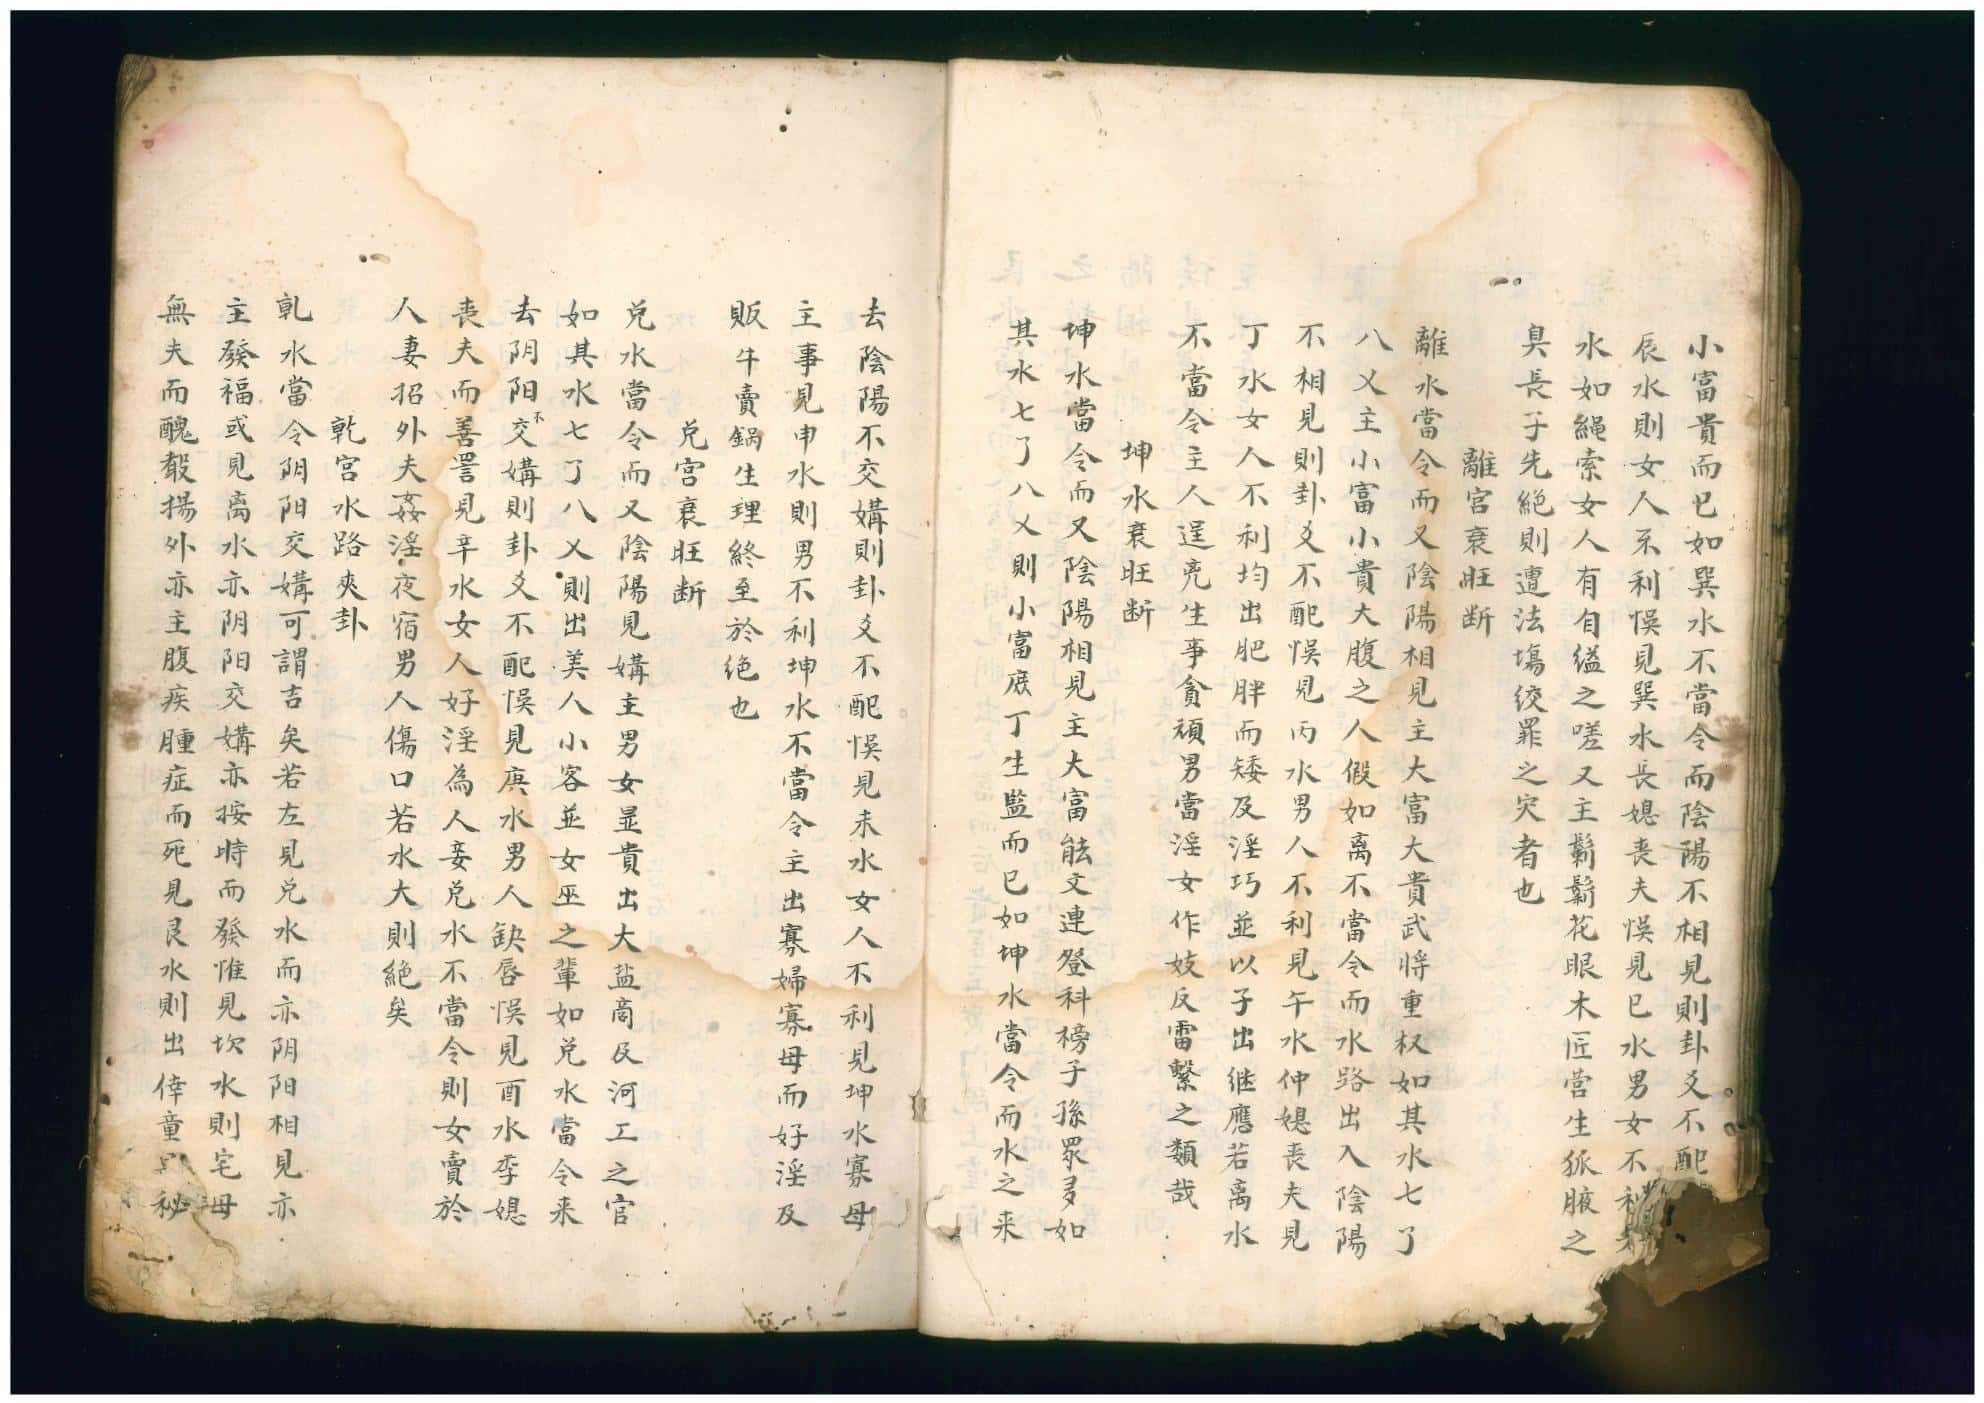 小富貴而已如巽水不當令而陰陽不相見則卦爻不配
辰水則女人不利悞見巽水長媳丧夫悞見巳水男女不利
水如縄索女人有自缢之嗟又主鬎鬁花眼木匠营生狐腋之
臭長子先絶則遭法塲绞罪之灾者也
離宮衰旺断
離水當令而又陰陽相見主大富大貴武将重权如其水七了
八乂主小富小貴大腹之人假如离不當令而水路出入陰陽
不相見則卦爻不配悞見丙水男人不利見午水仲媳丧夫見
丁水女人不利均出肥胖而矮及淫巧並以子出继應若离水
不當令主人逞亮生事貪頑男當淫女作妓反雷繫之類哉
坤水衰旺断
坤水當令而又陰陽相見主大富能文連登科榜子孫眾多如
其水七了八乂則小富庶丁生監而已如坤水當令而水之来
去陰陽不交媾則卦爻不配悞見未水女人不利見坤水寡母
主事見申水則男不利坤水不當令主出寡婦寡母而好淫及
販牛賣鍋生理終至於绝也
兑宮衰旺断
兑水當令而又陰陽見媾主男女显貴出大盐商及河工之官
如其水七了八乂則出美人小客並女巫之輩如兑水當令来
去阴阳不交媾則卦爻不配悞見庚水男人缺唇悞見酉水季媳
丧夫而善詈見辛水女人好淫為人妾兑水不當令則女賣於
人妻招外夫姦淫夜宿男人傷口若水大則絕矣
乾宮水路夾卦
乹水當令阴阳交媾可謂吉矣若左見兑水而亦阴阳相見亦
主發福或見离水亦阴阳交媾亦按時而發惟見坎水則宅母
無夫而醜聲揚外亦主腹疾腫症而死見艮水則出倖童 秘